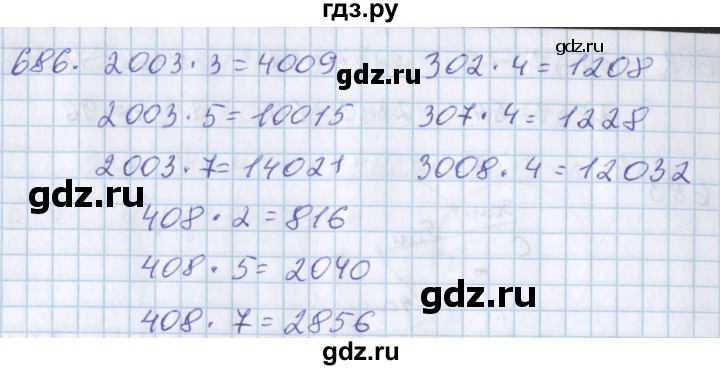 гдз.ру
686. 2003 · 3 = 4009
2003 · 5 = 10015
2003 · 7 = 14021
408 · 2 = 816
408 · 5 = 2040
408 · 7 = 2856
302 · 4 = 1208
307 · 4 = 1228
3008 · 4 = 12032
gdz.ru
gdz.ru
gdz.ru
gdz.ru
gdz.ru
gdz.ru